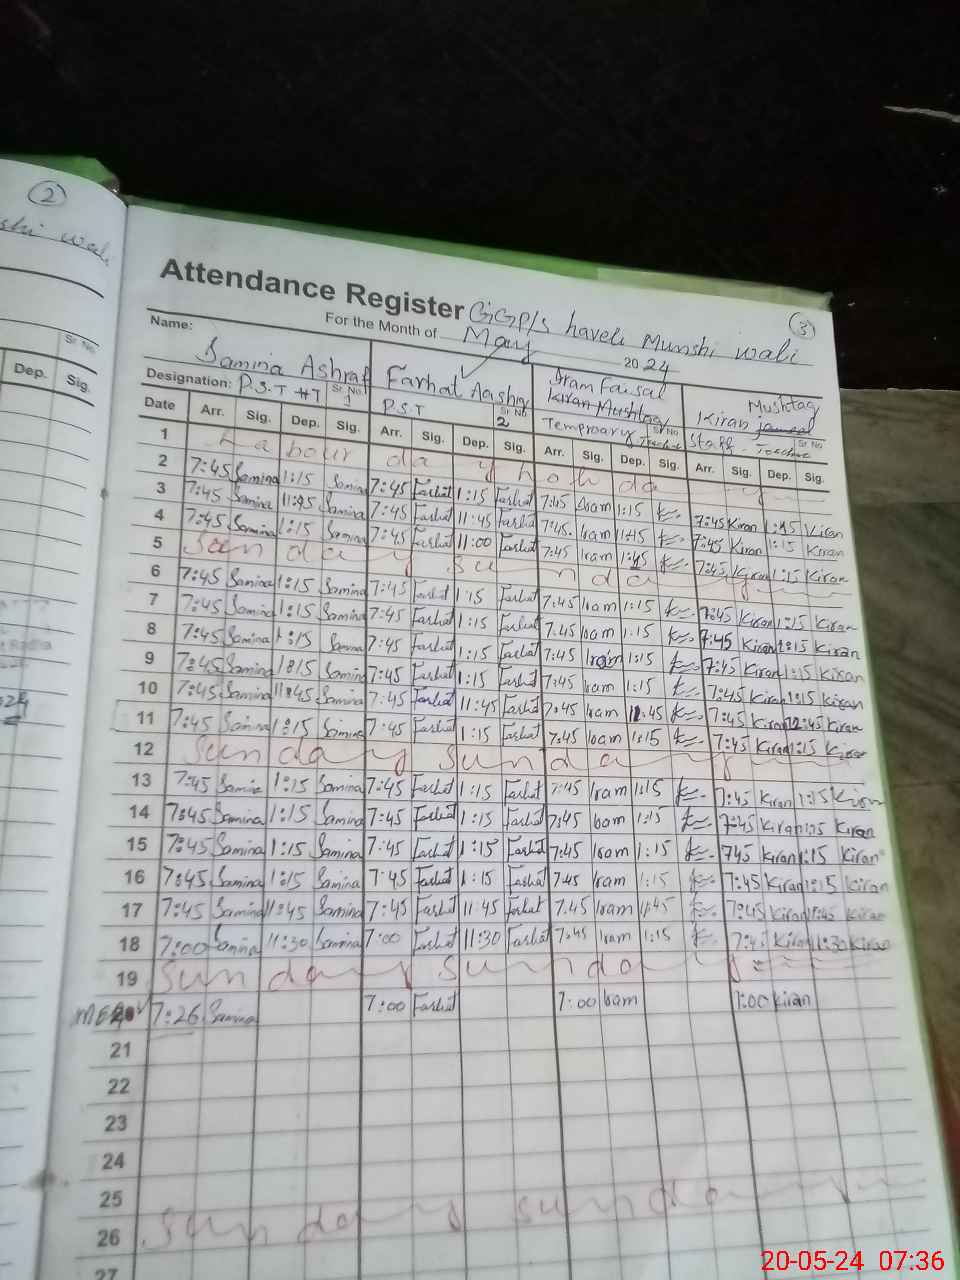 2
wali
Sr No
Dep. Sig.
3
Attendance Register GGP/S haveli Munshi wali
For the Month of May 2024
Name: Samina Ashraf Farhat Iram Faisal Kiran Mushtaq
Designation: P.S.T Sr No 1 P.S.T Sr No 2 Kiran Mushtaq Temproary Teacher Sr No Staff Teacher Sr No
Date Arr. Sig. Dep. Sig. Arr. Sig. Dep. Sig. Arr. Sig. Dep. Sig. Arr. Sig. Dep. Sig.
1 Labour day holiday
2 7:45 Samina 1:15 Samina 7:45 Farhat 1:15 Farhat 7:45 Iram 1:15 7:45 Kiran 1:15 Kiran
3 7:45 Samina 11:45 Samina 7:45 Farhat 11:45 Farhat 7:45 Iram 11:45 7:45 Kiran 1:15 Kiran
4 7:45 Samina 1:15 Samina 7:45 Farhat 11:00 Farhat 7:45 Iram 7:45 Kiran 1:15 Kiran
5 Sunday Sunday
6 7:45 Samina 1:15 Samina 7:45 Farhat 1:15 Farhat 7:45 Iram 1:15 7:45 Kiran 1:15 Kiran
7 7:45 Samina 1:15 Samina 7:45 Farhat 1:15 Farhat 7:45 Iram 1:15 7:45 Kiran 1:15 Kiran
8 7:45 Samina 1:15 Samina 7:45 Farhat 1:15 Farhat 7:45 Iram 1:15 7:45 Kiran 1:15 Kiran
9 7:45 Samina 1:15 Samina 7:45 Farhat 1:15 Farhat 7:45 Iram 1:15 7:45 Kiran 1:15 Kiran
10 7:45 Samina 11:45 Samina 7:45 Farhat 11:45 Farhat 7:45 Iram 7:45 Kiran 12:45 Kiran
11 7:45 Samina 1:15 Samina 7:45 Farhat 1:15 Farhat 7:45 Iram 1:15 7:45 Kiran 1:15 Kiran
12 Sunday Sunday
13 7:45 Samina 1:15 Samina 7:45 Farhat 1:15 Farhat 7:45 Iram 1:15 7:45 Kiran 1:15 Kiran
14 7:45 Samina 1:15 Samina 7:45 Farhat 1:15 Farhat 7:45 Iram 1:15 7:45 Kiran 1:15 Kiran
15 7:45 Samina 1:15 Samina 7:45 Farhat 1:15 Farhat 7:45 Iram 1:15 745 Kiran 1:15 Kiran
16 7:45 Samina 1:15 Samina 7:45 Farhat 1:15 Farhat 7:45 Iram 1:15 7:45 Kiran 1:15 Kiran
17 7:45 Samina 11:45 Samina 7:45 Farhat 11:45 Farhat 7:45 Iram 11:45 7:45 Kiran 11:45 Kiran
18 7:00 Samina 11:30 Samina 7:00 Farhat 11:30 Farhat 7:45 Iram 1:15 7:45 Kiran 11:30 Kiran
19 Sunday Sunday
20 7:26 Samina 7:00 Farhat 7:00 Iram 7:00 Kiran
21
22
23
24
25
26 Sunday Sunday
27
20-05-24 07:36